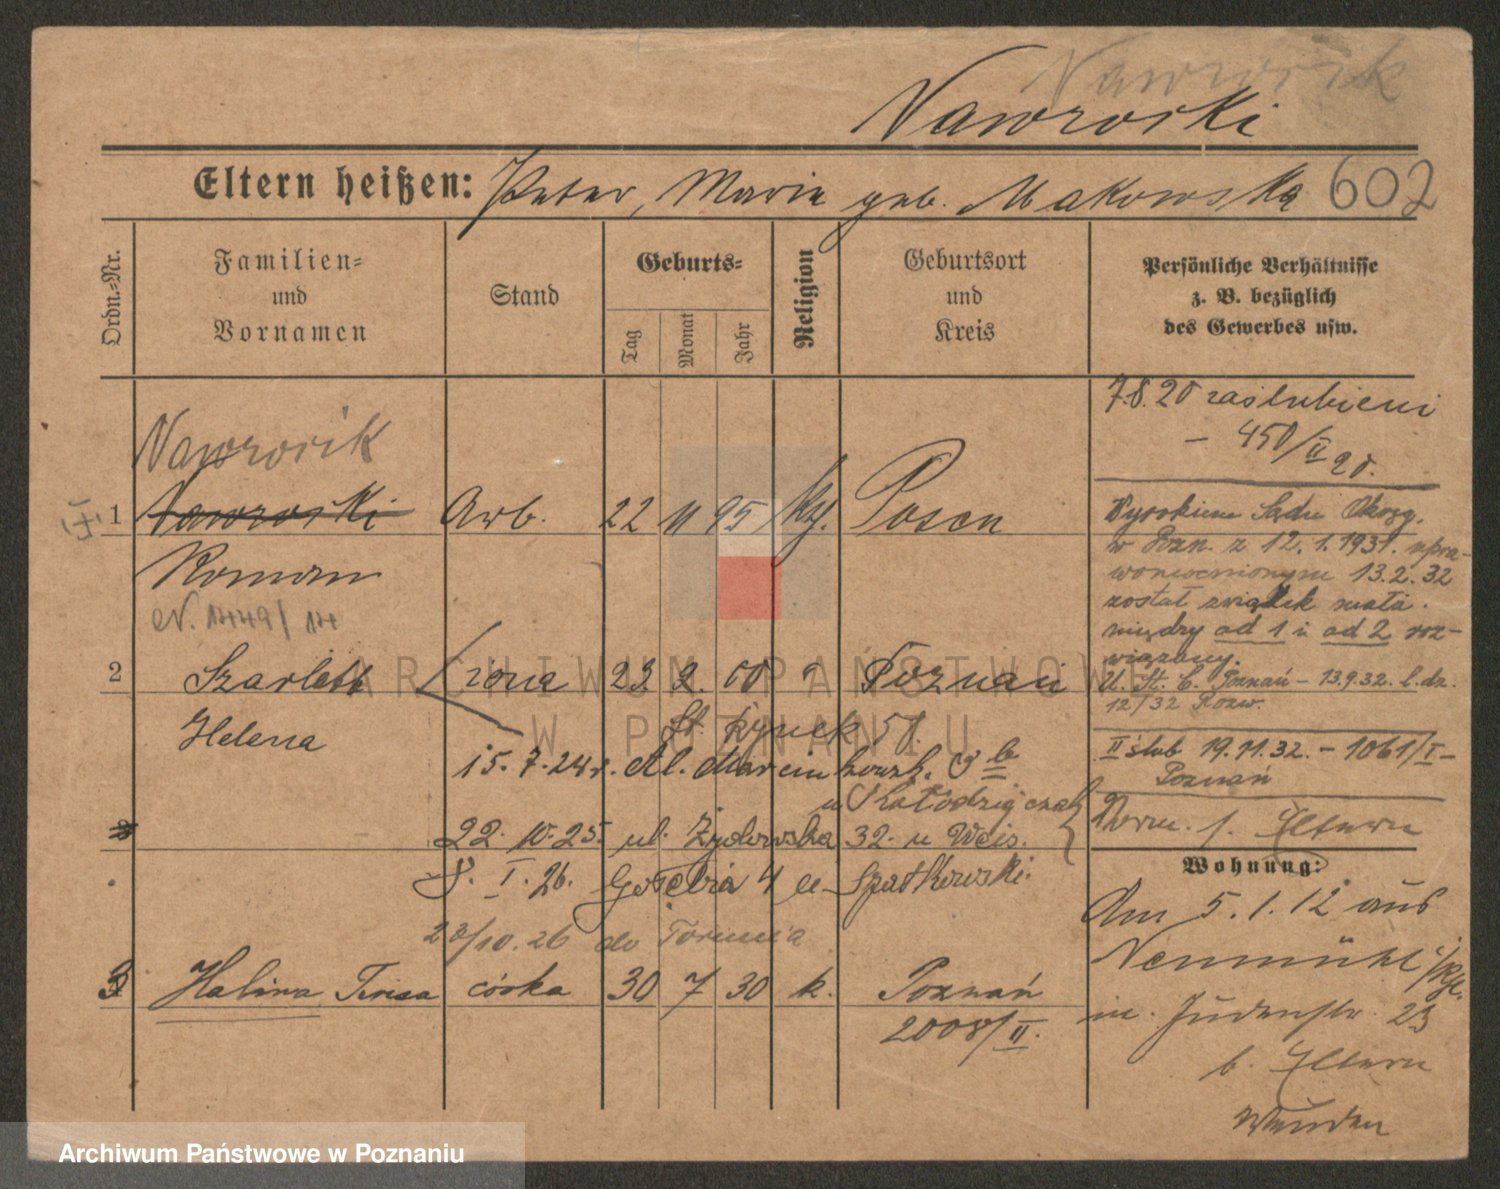 Nawrocik
Nawrocki
Eltern heißen: Peter, Marie geb. Makowska 602
Ordn.-Nr.
Familien-
und
Vornamen
Stand
Geburts-
Tag
Monat
Jahr
Religion
Geburtsort
und
Kreis
Persönliche Verhältnisse
z. B. bezüglich
des Gewerbes usw.
7.8.20 zaślubieni
– 450/II 20.
Nawrocik
1 Nawrocki Arb. 22 11 95 Kt. Posen
Roman
N. 1449/14
Wyrokiem Sądu Okręg.
w Pozn. z 12.1.1931. upra-
womocnionym 13.2.32
został związek małż.
między ad 1 i ad 2 roz-
wiązany.
U. St. C. Poznań – 13.9.32. l. dz.
12/32 Rozw.
2 Szarlett żona 23 2. 00 " Poznań
Helena
St. Rynek 51.
15.7.24r. Al. Marcinkowsk. 3 b
II ślub 19.11.32. – 1061/I –
Poznań
u Kołodziejczak
3
22.10.25. ul. Żydowska 32. u Weis.
Verm. f. Eltern
8. I. 26. Gołębia 4 u Spatkowski.
Wohnung:
23/10.26 do Torunia
Am 5.1.12 aus
Neumühl
3 Halina Teresa córka 30 7 30 k. Poznań
2008/II.
n. Judenstr. 23
b. Eltern